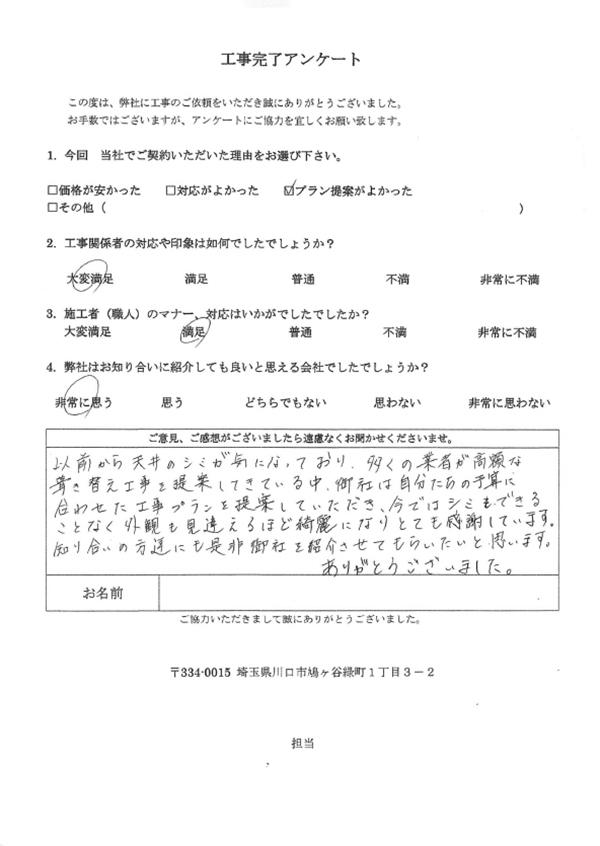 工事完了アンケート
この度は、弊社に工事のご依頼をいただき誠にありがとうございました。
お手数ではございますが、アンケートにご協力を宜しくお願い致します。
1. 今回　当社でご契約いただいた理由をお選び下さい。
□価格が安かった　□対応がよかった　☑プラン提案がよかった
□その他（　　　）
2. 工事関係者の対応や印象は如何でしたでしょうか？
大変満足　満足　普通　不満　非常に不満
3. 施工者（職人）のマナー、対応はいかがでしたでしたか？
大変満足　満足　普通　不満　非常に不満
4. 弊社はお知り合いに紹介しても良いと思える会社でしたでしょうか？
非常に思う　思う　どちらでもない　思わない　非常に思わない
ご意見、ご感想がございましたら遠慮なくお聞かせくださいませ。
以前から天井のシミが気になっており、多くの業者が高額な
葺き替え工事を提案してきている中、御社は自分たちの予算に
合わせた工事プランを提案していただき、今ではシミもできる
ことなく外観も見違えるほど綺麗になりとても感謝しています。
知り合いの方達にも是非御社を紹介させてもらいたいと思います。
ありがとうございました。
お名前
ご協力いただきまして誠にありがとうございました。
〒334-0015 埼玉県川口市鳩ヶ谷緑町１丁目３－２
担当